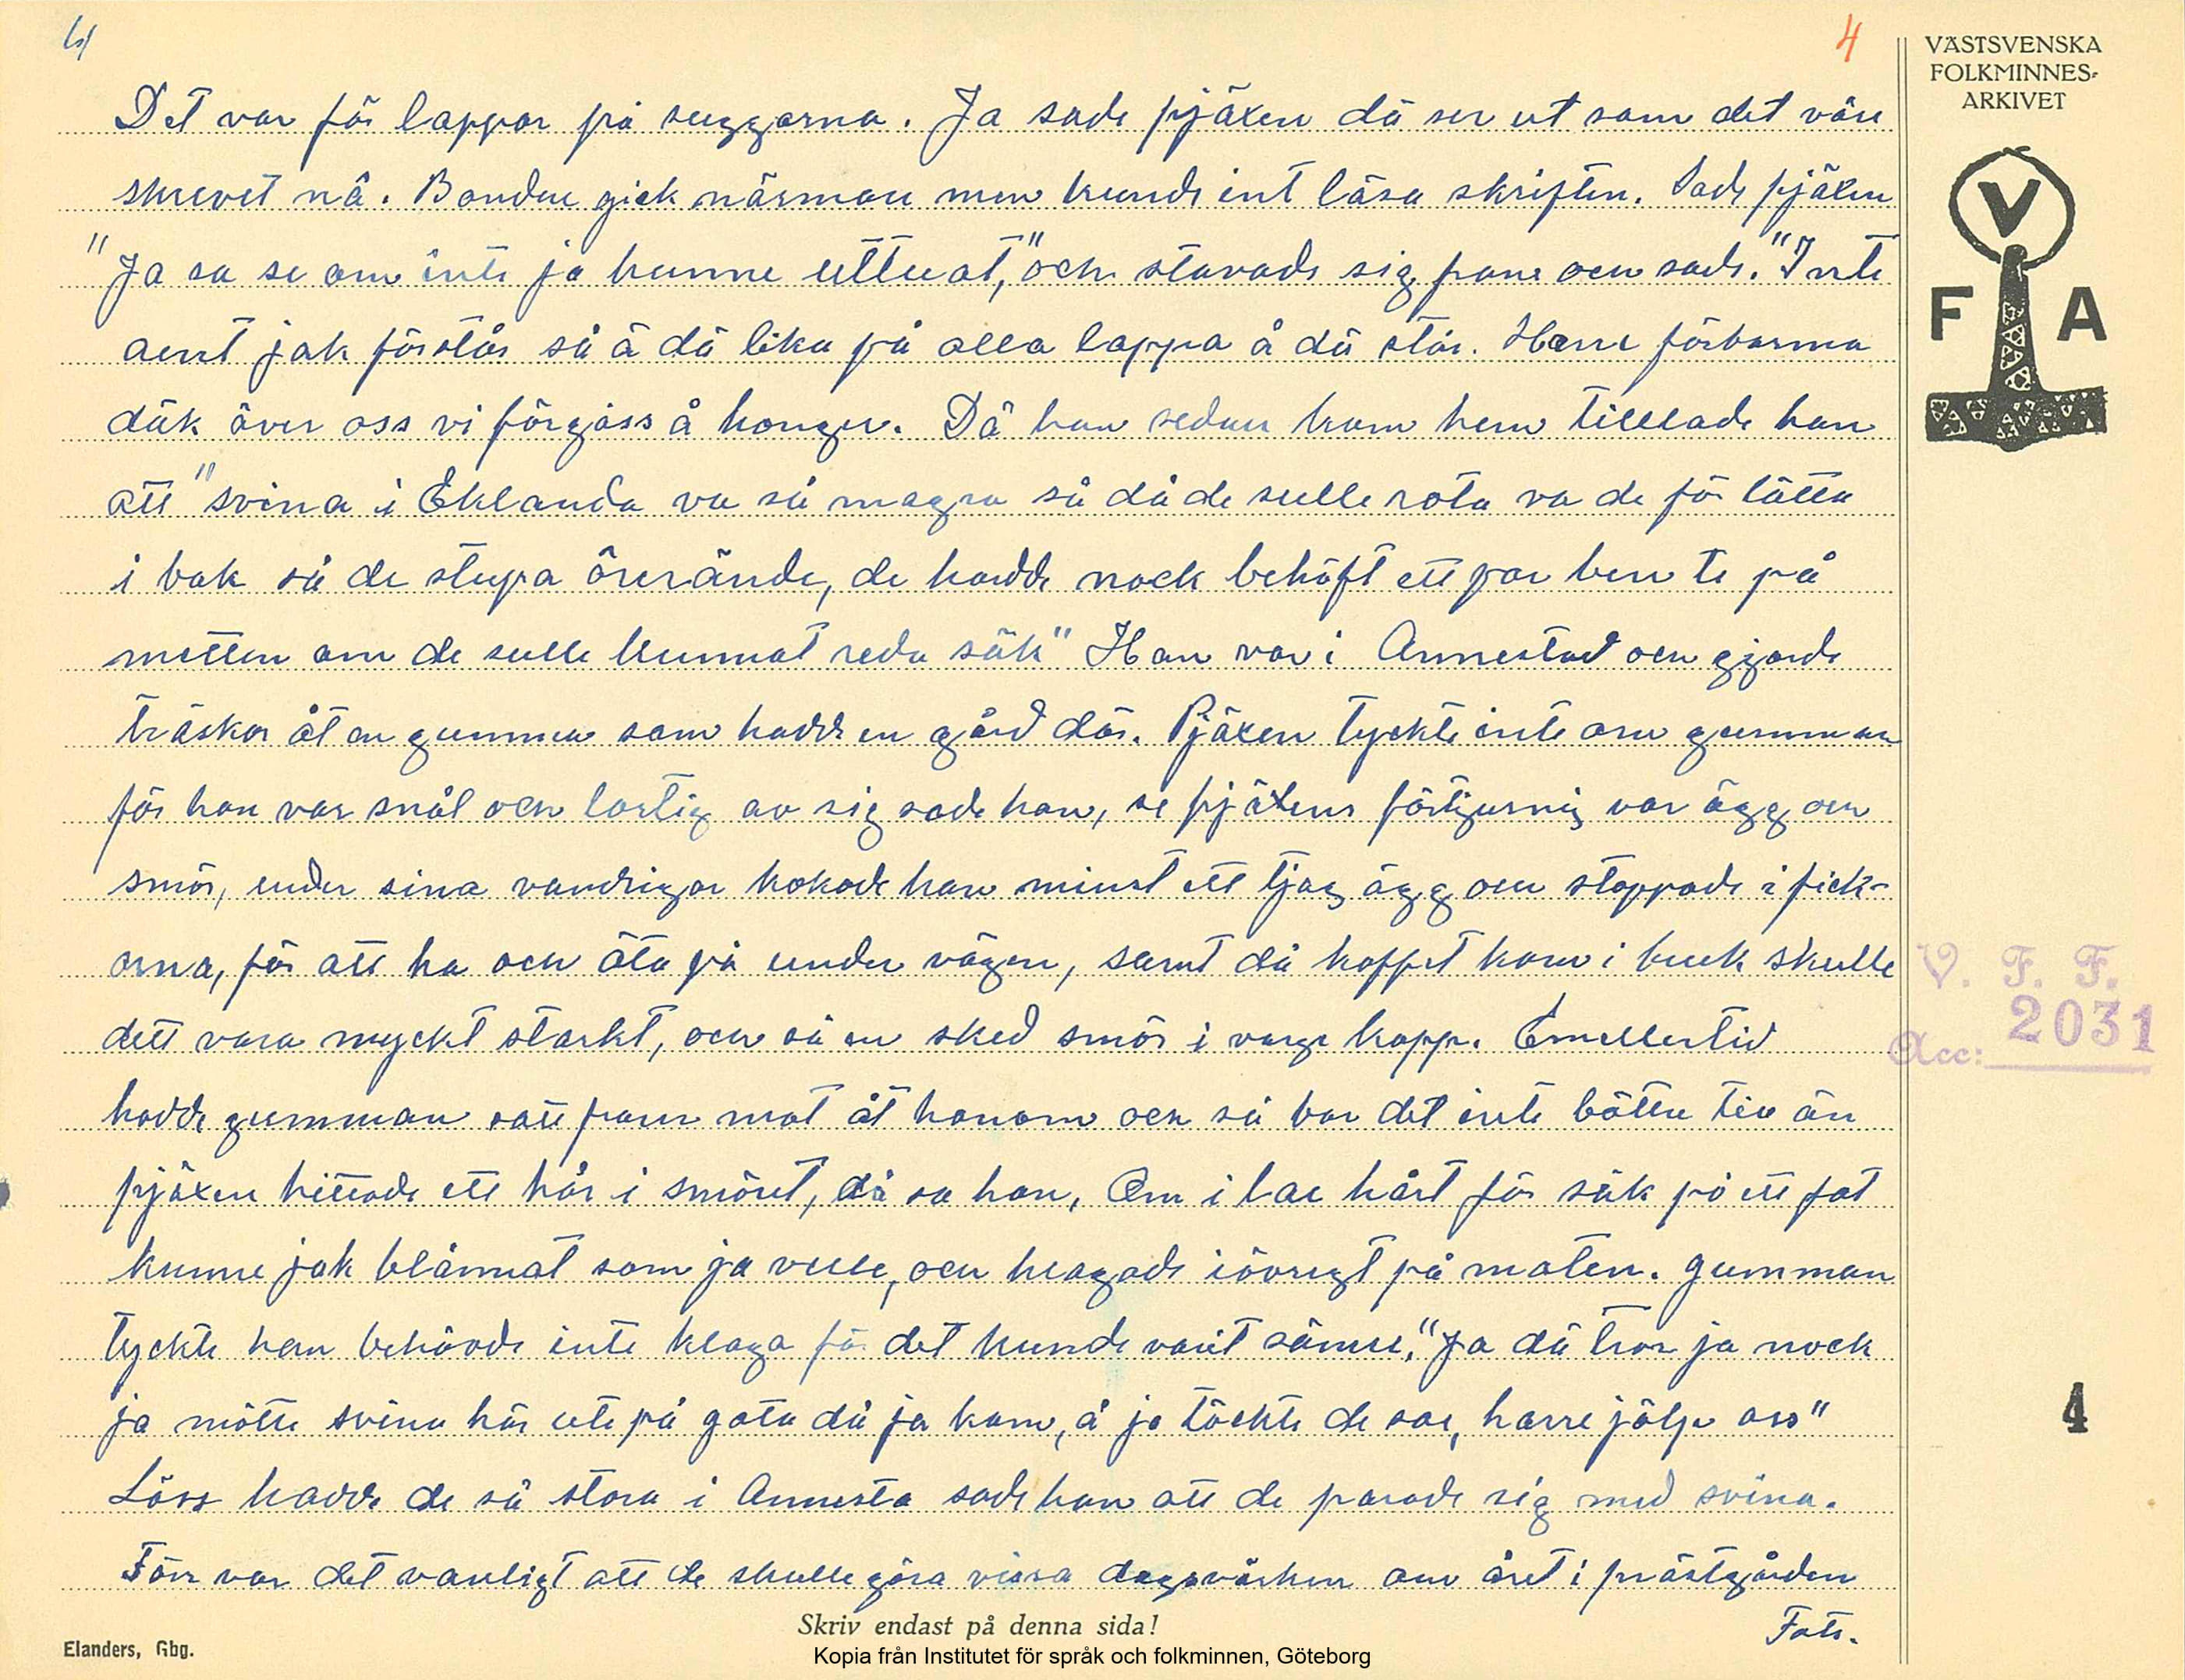 4
4
VÄSTSVENSKA
FOLKMINNES-
ARKIVET
V
F A
Det var för lappar på suggorna. Ja sade pjäxen dä ser ut som det våre
skrevet nå. Bonden gick närmare men kunde int läsa skriften. Sade pjäxen
"Ja sa se om inte ja kunne uttuat," och stavade sig fram och sade. "Inte
aent jak förstår så ä dä lika på alla lappa å dä står. Harre förbarma
däk över oss vi förgåss å honger. Då han sedan kom hem tillade han
att "svina i Eklanda va så magra så då de sulle rota va de för lätta
i bak så de stupa örerände, de hadde nock behöft ett par ben te på
metten om de sulle kunnat reda säk" Han var i Annestad och gjorde
träskor åt en gumma som hadde en gård där. Pjäxen tyckte inte om gumman
för hon var snål och lortig av sig sade han, se pjäxens förtjusning var ägg och
smör, under sina vandringar kokade han minst ett tjog ägg och stoppade i fick-
orna, för att ha och äta på under vägen, samt då kaffet kom i bruk skulle
dett vara myckt starkt, och så en sked smör i varge kopp. Emellertid
hadde gumman satt fram mat åt honom och så bar det inte bättre till än
pjäxen hittade ett hår i smöret, då sa han, Om i lae hårt för säk på ett fat
kunne jak blånnat som ja velle, och klagade iövrigt på maten. gumman
tyckte han behövde inte klaga för det kunde varit sämre, "Ja dä tror ja nock
ja mötte svina här ute på gata då ja kom, å ja töckte de sae, harre jölp oss"
Löss hadde de så stora i Annesta sade han att de parade sig med svina.
Förr var det vanligt att de skulle göra vissa dagsvärken om året i prästgården
Forts.
V. F. F.
Acc: 2031
4
Skriv endast på denna sida!
Elanders, Gbg.
Kopia från Institutet för språk och folkminnen, Göteborg